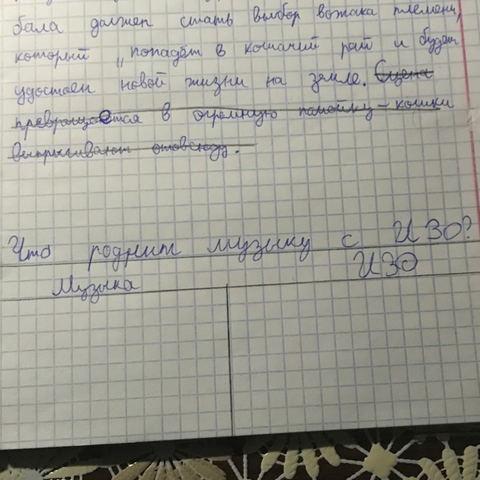 бала должен стать выбор вожака племени,
который „попадёт в кошачий рай и будет
удостоен новой жизни на земле. Сцена
превращается в огромную помойку – кошки
выпрыгивают отовсюду.
Что роднит музыку с ИЗО?
Музыка
ИЗО